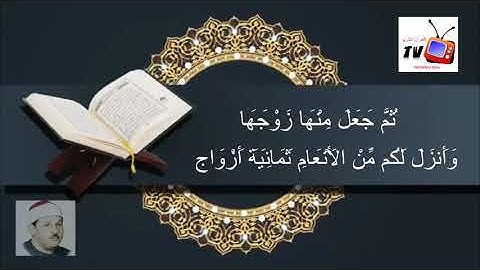 TV
ثُمَّ جَعَلَ مِنْهَا زَوْجَهَا
وَأَنزَلَ لَكُم مِّنْ الأَنْعَامِ ثَمَانِيَةَ أَزْوَاجٍ